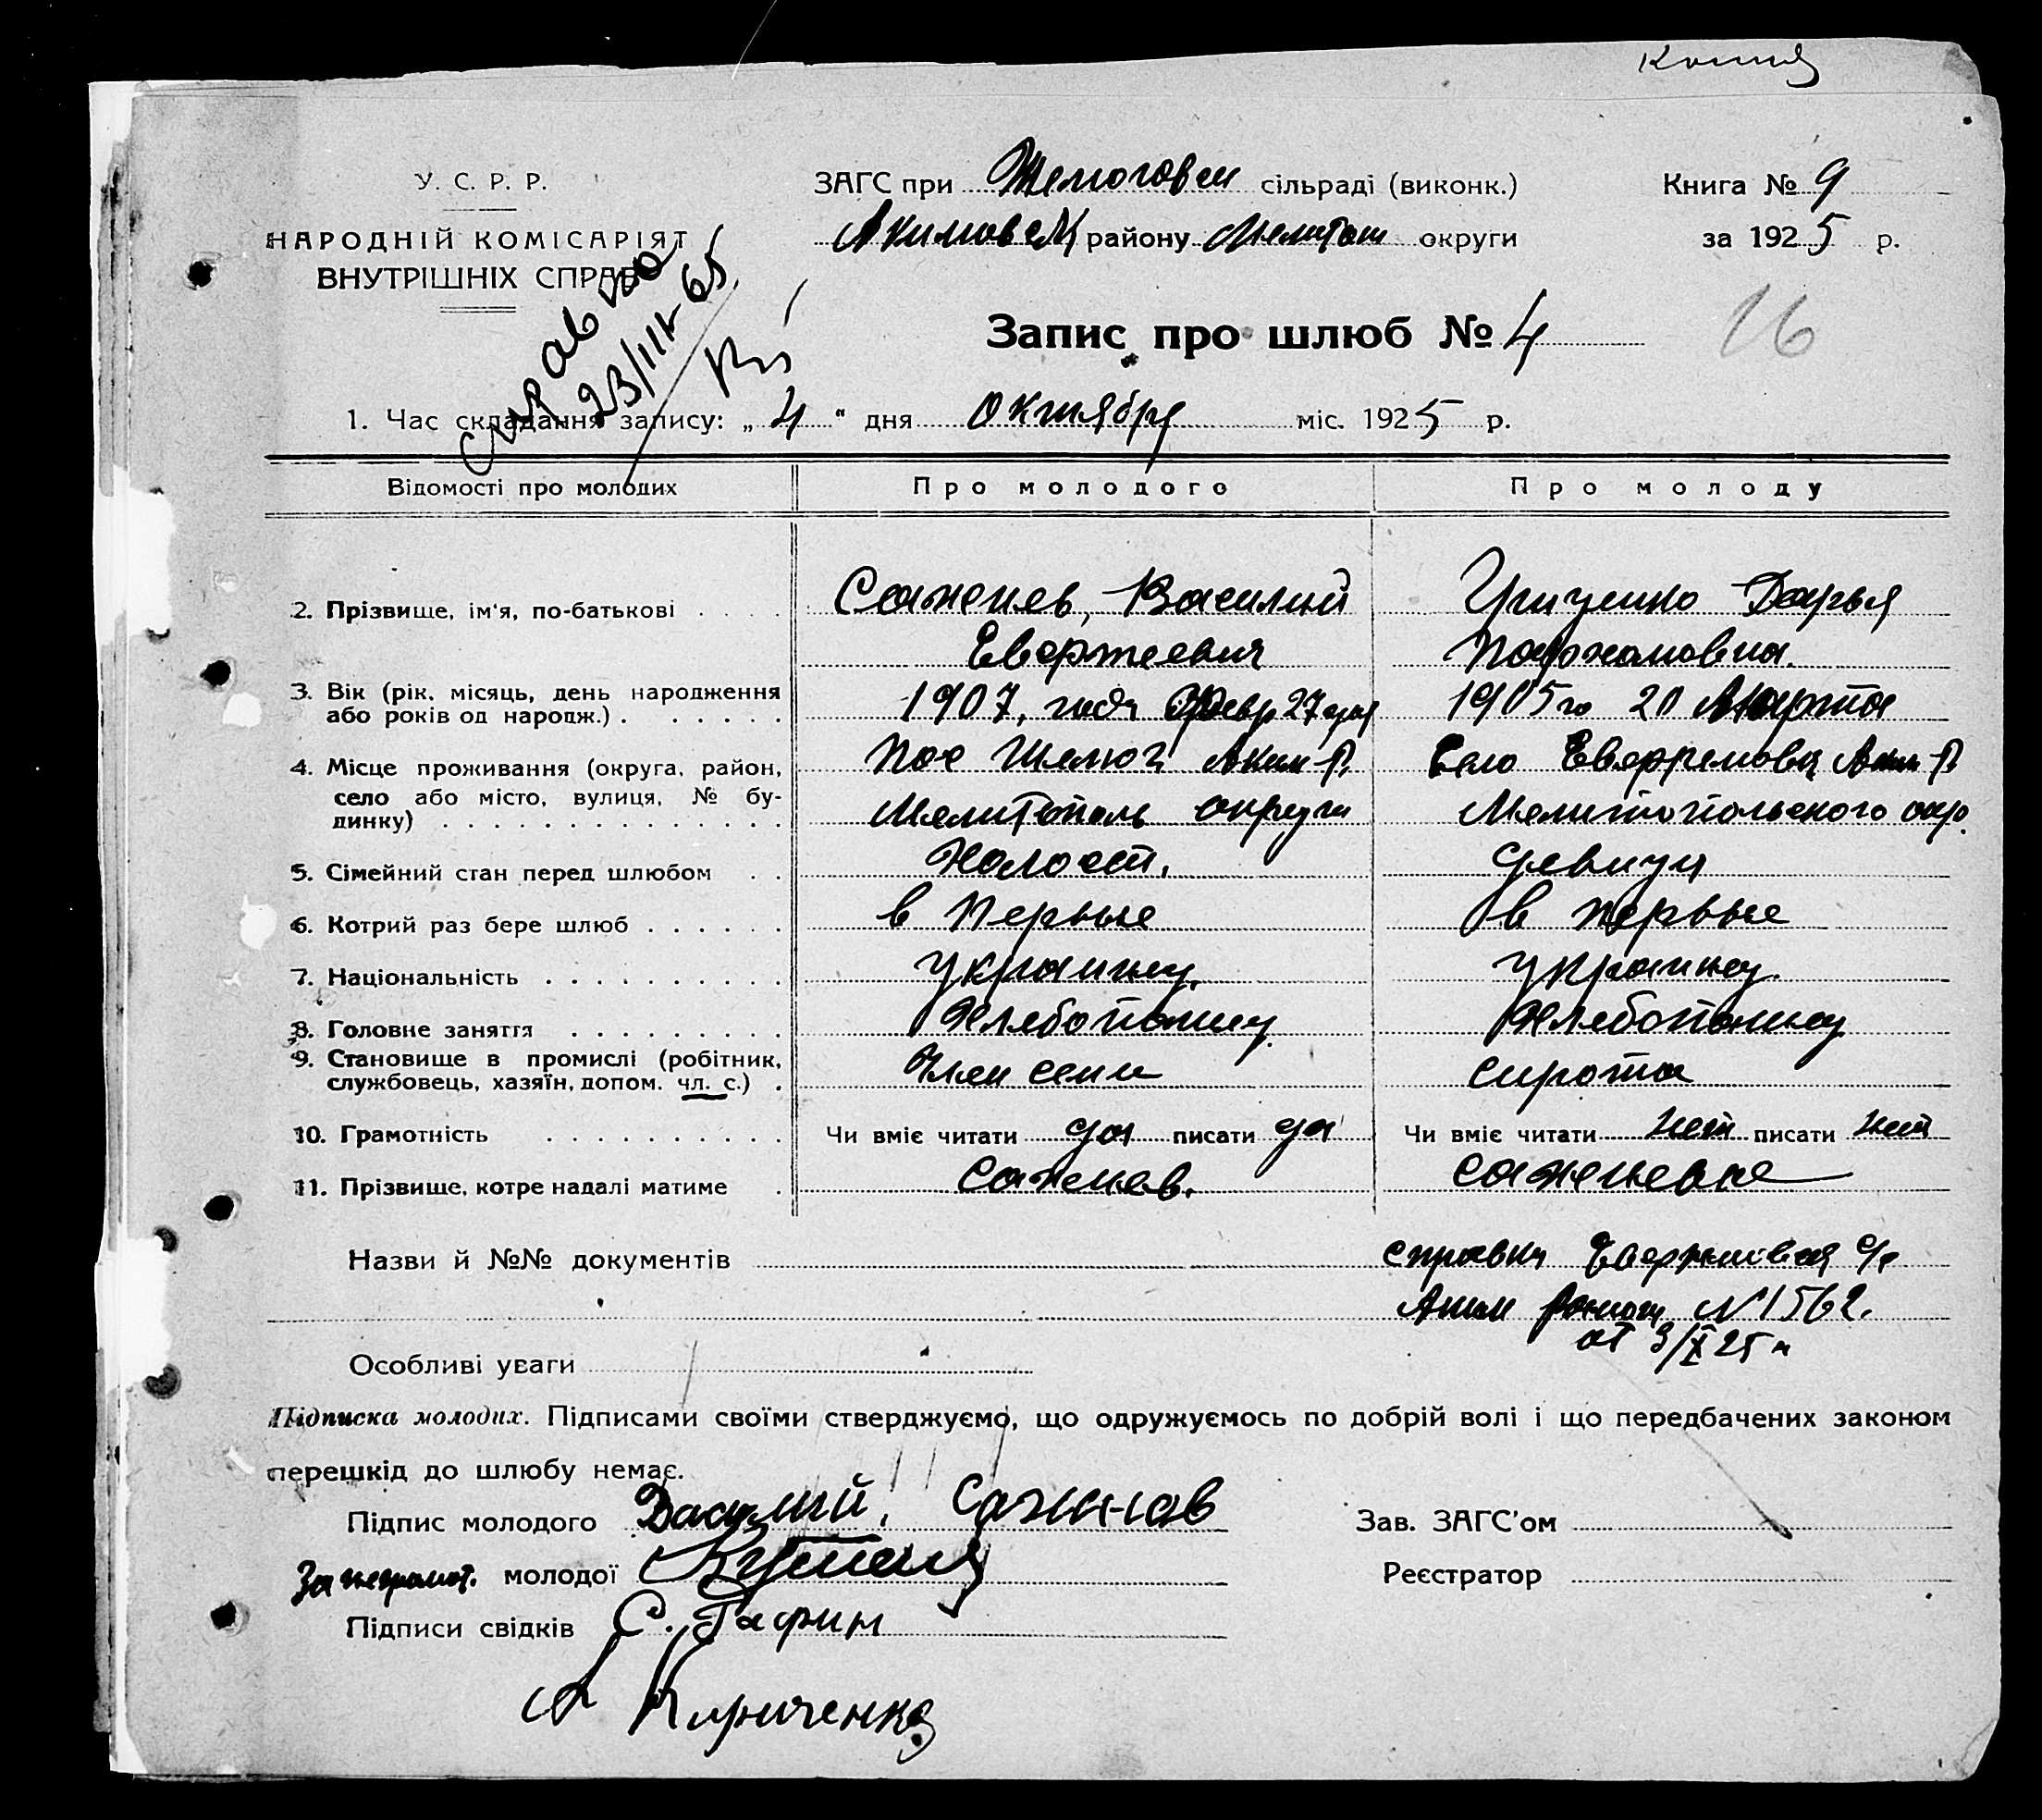 Копия
У. С. Р. Р.
НАРОДНІЙ КОМІСАРІЯТ
ВНУТРІШНІХ СПРАВ
Справка
23/III-65
ЗАГС при Шелюговск сільраді (виконк.)
Акимовск району Мелитоп округи
Книга № 9
за 1925 р.
Запис про шлюб № 4
16
1. Час складання запису: „ 4 “ дня октября міс. 1925 р.
Відомості про молодих Про молодого Про молоду
2. Прізвище, ім'я, по-батькові Саженев, Василий Дарья
Пархомовна.
3. Вік (рік, місяць, день народження 1907, года Февр 27 дня 1905 го 20 Марта
або років од народж.)
4. Місце проживання (округа, район, Пос Шелюг Аким Р. Село Аким Р.
село або місто, вулиця, № бу- Мелитополь округи Мелитопольского окр.
динку)
5. Сімейний стан перед шлюбом Холост. девица
6. Котрий раз бере шлюб в Первые в первые
7. Національність украинец. украинец.
8. Головне заняття Хлебопашец Хлебопашец
9. Становище в промислі (робітник, Член семи сирота
службовець, хазяїн, допом. чл. с.)
10. Грамотність Чи вміє читати да писати да Чи вміє читати нет писати нет
11. Прізвище, котре надалі матиме Саженев. Саженевне
Назви й №№ документів справка с/с
Аким району N 1562.
от 3/X 25 г
Особливі уваги
Підписка молодих. Підписами своїми стверджуємо, що одружуємось по добрій волі і що передбачених законом
перешкід до шлюбу немає.
Підпис молодого Василий, Саженов
За неграмот. молодої
Підписи свідків С. Гафин
А Кириченко
Зав. ЗАГС'ом
Реєстратор